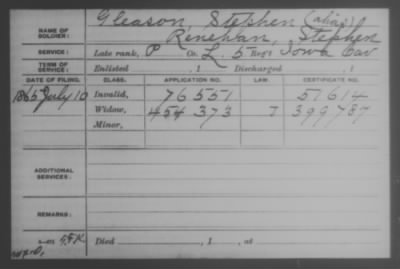 Gleason, Stephen (alias)
NAME OF SOLDIER: Rinehan, Stephen
SERVICE: Late rank, P Co. L, 5 Reg't Iowa Cav
TERM OF SERVICE: Enlisted , 1 Discharged , 1
DATE OF FILING. CLASS. APPLICATION NO. LAW. CERTIFICATE NO.
1865 July 10 Invalid, 76 551 51 614
Widow, 454 373 7 399 787
Minor,
ADDITIONAL SERVICES:
REMARKS:
Died , 1 , at